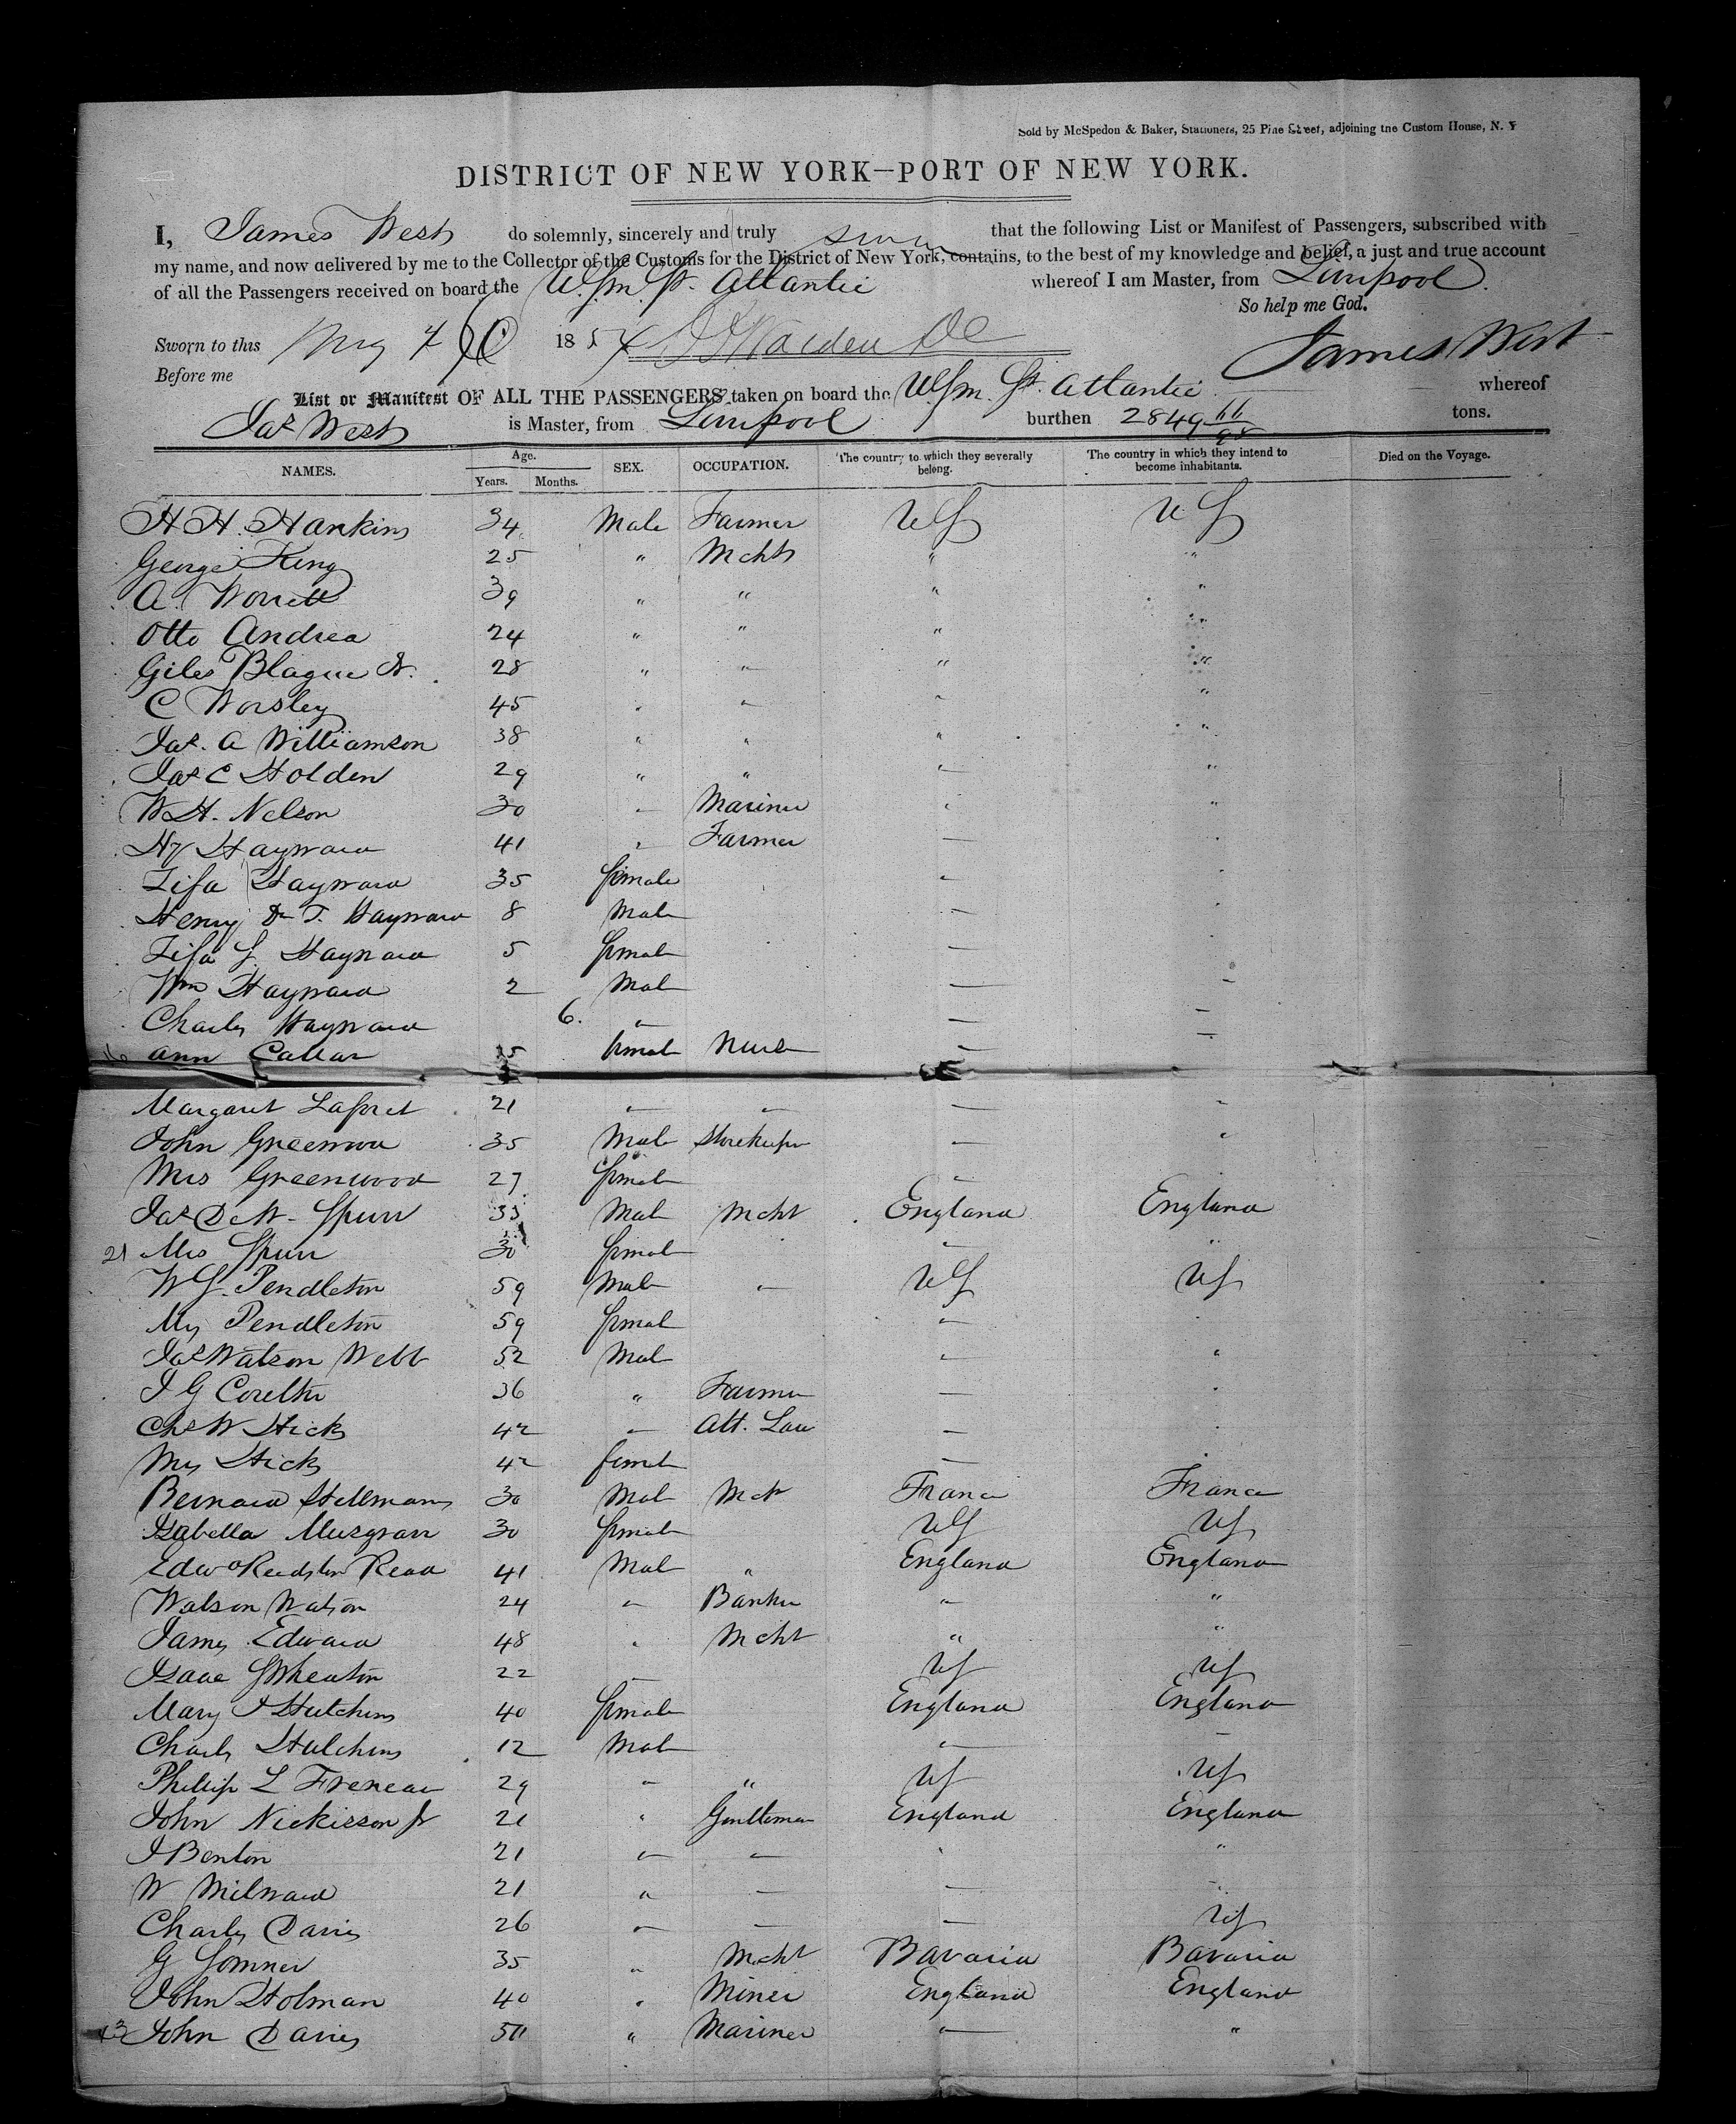 Sold by McSpedon & Baker, Stationers, 25 Pine Street, adjoining the Custom House, N. Y
DISTRICT OF NEW YORK—PORT OF NEW YORK.
I, James West do solemnly, sincerely and truly swear that the following List or Manifest of Passengers, subscribed with
my name, and now delivered by me to the Collector of the Customs for the District of New York, contains, to the best of my knowledge and belief, a just and true account
of all the Passengers received on board the U.S.M. St. Atlantic whereof I am Master, from Liverpool.
So help me God.
Sworn to this 1854 James West
Before me
List or Manifest OF ALL THE PASSENGERS taken on board the U.S.M. St. Atlantic whereof
Jas West is Master, from Liverpool burthen 2849 66/95 tons.
NAMES. Age. Years. Months. SEX. OCCUPATION. The country to which they severally belong. The country in which they intend to become inhabitants. Died on the Voyage.
H H. Hankins 34 Male Farmer US US
George King 25 " Mcht " "
A. Worrell 39 " " " "
Otto Andrea 24 " " " "
Giles Blague Jr. 28 " " " "
C Worsley 45 " " " "
Jas. A Williamson 38 " " " "
Jas C Holden 29 " " " "
W H. Nelson 30 " Mariner " "
Hy Hayward 41 " Farmer " "
Hayward 35 female " "
Henry T. Hayward 8 Male " "
Hayward 5 female " "
Wm Hayward 2 Male " "
Charles Hayward 6. " " "
16 Ann 25 female Nurse " "
Margaret 21 " " " "
John Greenwood 35 Male Storekeeper " "
Mrs Greenwood 27 female "
Jas De W. Spurr 33 Male Mcht England England
21 Mrs Spurr 30 female " "
W S. Pendleton 59 Male " US US
Mrs Pendleton 59 female " "
Jas Watson Webb 52 Male " "
J G 36 " Farmer " "
Chs W Hicks 42 " Att. Law " "
Mrs Hicks 42 female " "
Bernard Hellmann 30 Male Mcht France France
Isabella Musgrave 30 female US US
Edwd Read 41 Male " England England
Watson Watson 24 " Banker " "
James Edward 48 " Mcht " "
Isaac S Wheaton 22 " US US
Mary J Hutchins 40 female England England
Charles Hutchins 12 Male " "
Phillip L Freneau 29 " " US US
John Nickisson Jr 21 " Gentleman England England
J Benton 21 " " " "
W Milward 21 " " " "
Charles Davis 26 " " " US
G Somner 35 " Mcht Bavaria Bavaria
John Holman 40 " Miner England England
43 John Davis 50 " Mariner " "